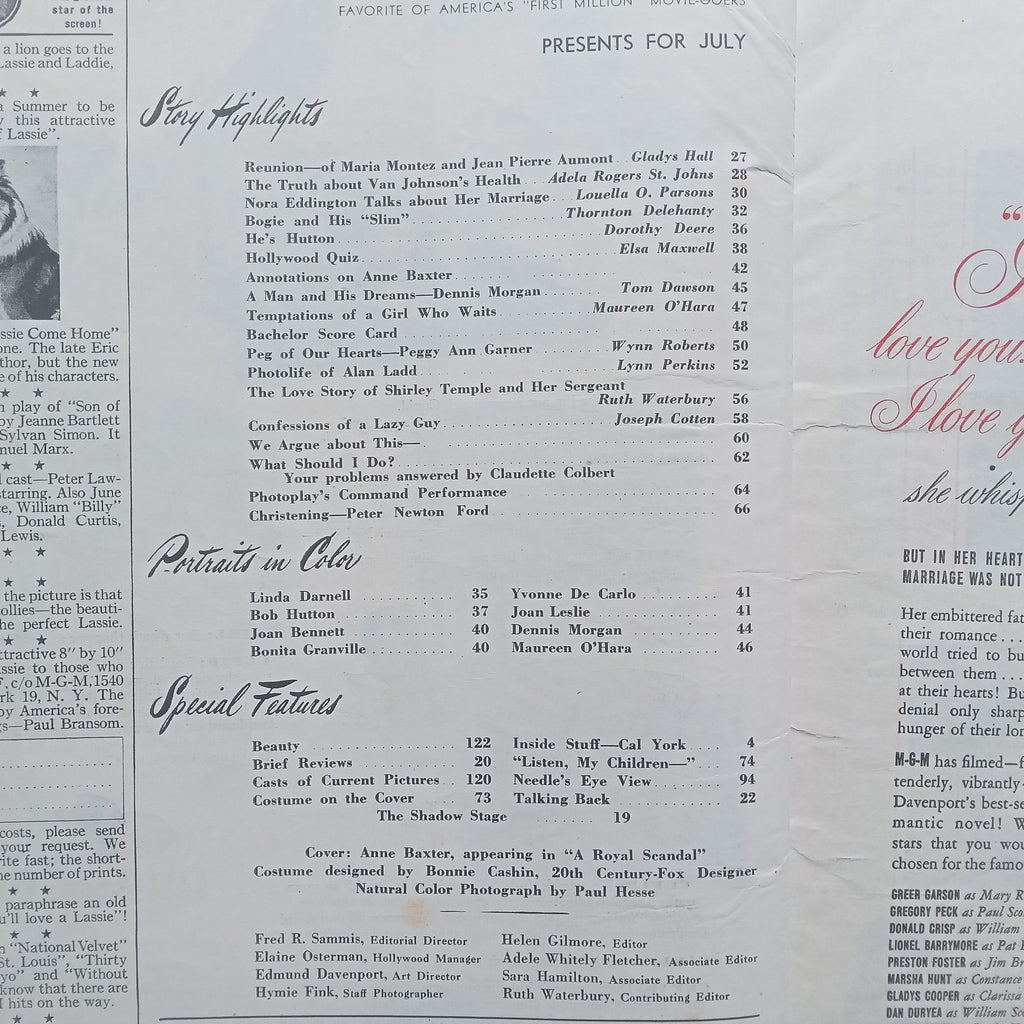 star of the
screen!
a lion goes to the
Lassie and Laddie,
★ ★
a Summer to be
this attractive
Lassie".
ssie Come Home"
one. The late Eric
thor, but the new
e of his characters.
★ ★
play of "Son of
by Jeanne Bartlett
Sylvan Simon. It
muel Marx.
★ ★
cast—Peter Law-
starring. Also June
e, William "Billy"
Donald Curtis,
Lewis.
★ ★
★ ★
the picture is that
collies—the beauti-
he perfect Lassie.
★ ★
ttractive 8" by 10"
ssie to those who
F, c/o M-G-M, 1540
rk 19, N. Y. The
by America's fore-
s—Paul Bransom.
costs, please send
your request. We
rite fast; the short-
he number of prints.
★ ★
paraphrase an old
u'll love a Lassie"!
★ ★
"National Velvet"
St. Louis", "Thirty
yo" and "Without
know that there are
hits on the way.
★ ★
FAVORITE OF AMERICA'S "FIRST MILLION" MOVIE-GOERS
PRESENTS FOR JULY
Story Highlights
Reunion—of Maria Montez and Jean Pierre Aumont Gladys Hall 27
The Truth about Van Johnson's Health Adela Rogers St. Johns 28
Nora Eddington Talks about Her Marriage Louella O. Parsons 30
Bogie and His "Slim" Thornton Delehanty 32
He's Hutton Dorothy Deere 36
Hollywood Quiz Elsa Maxwell 38
Annotations on Anne Baxter 42
A Man and His Dreams—Dennis Morgan Tom Dawson 45
Temptations of a Girl Who Waits Maureen O'Hara 47
Bachelor Score Card 48
Peg of Our Hearts—Peggy Ann Garner Wynn Roberts 50
Photolife of Alan Ladd Lynn Perkins 52
The Love Story of Shirley Temple and Her Sergeant
Ruth Waterbury 56
Confessions of a Lazy Guy Joseph Cotten 58
We Argue about This— 60
What Should I Do? 62
Your problems answered by Claudette Colbert
Photoplay's Command Performance 64
Christening—Peter Newton Ford 66
Portraits in Color
Linda Darnell 35 Yvonne De Carlo 41
Bob Hutton 37 Joan Leslie 41
Joan Bennett 40 Dennis Morgan 44
Bonita Granville 40 Maureen O'Hara 46
Special Features
Beauty 122 Inside Stuff—Cal York 4
Brief Reviews 20 "Listen, My Children—" 74
Casts of Current Pictures 120 Needle's Eye View 94
Costume on the Cover 73 Talking Back 22
The Shadow Stage 19
Cover: Anne Baxter, appearing in "A Royal Scandal"
Costume designed by Bonnie Cashin, 20th Century-Fox Designer
Natural Color Photograph by Paul Hesse
Fred R. Sammis, Editorial Director Helen Gilmore, Editor
Elaine Osterman, Hollywood Manager Adele Whitely Fletcher, Associate Editor
Edmund Davenport, Art Director Sara Hamilton, Associate Editor
Hymie Fink, Staff Photographer Ruth Waterbury, Contributing Editor
"
I
love you.
I love y
she whisp
BUT IN HER HEART
MARRIAGE WAS NOT
Her embittered fat
their romance . . .
world tried to bu
between them . . .
at their hearts! Bu
denial only sharp
hunger of their lon
M-G-M has filmed—f
tenderly, vibrantly-
Davenport's best-se
mantic novel! W
stars that you wou
chosen for the famo
GREER GARSON as Mary R
GREGORY PECK as Paul Sco
DONALD CRISP as William
LIONEL BARRYMORE as Pat
PRESTON FOSTER as Jim Br
MARSHA HUNT as Constance
GLADYS COOPER as Clarissa
DAN DURYEA as William Sc